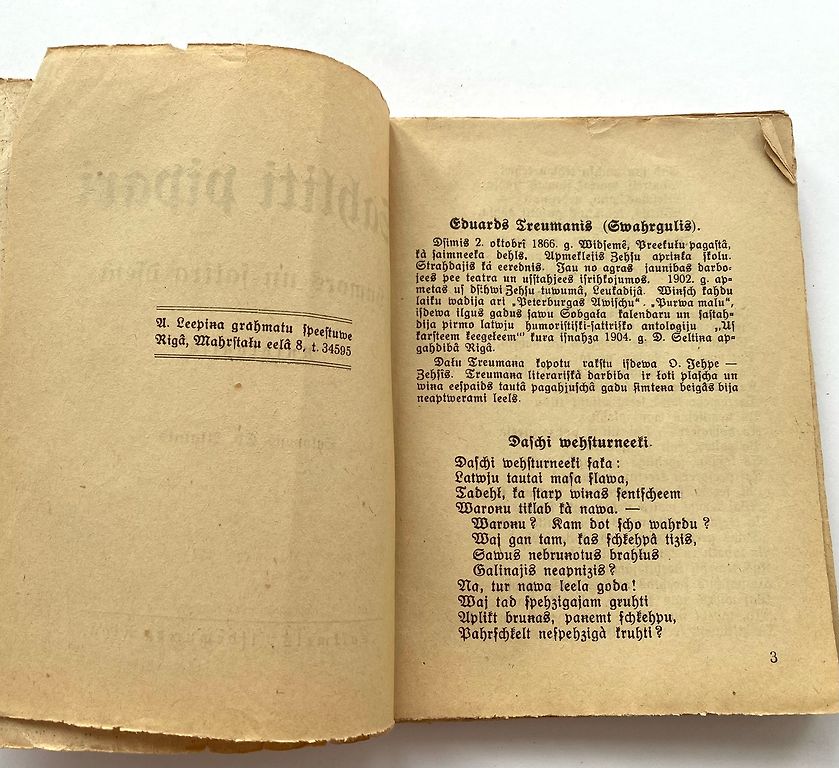 A. Leepiņa grahmatu speestuwe
Rigâ, Mahrstaļu eelâ 8, t. 34595
Eduards Treumanis (Swahrgulis).
Dsimis 2. oktobrî 1866. g. Widsemê, Preekuļu pagastâ,
kà saimneeka dehls. Apmeklejis Zehsu apriņķa skolu.
Strahdajis kâ eerednis. Jau no agras jaunibas darbo-
jees pee teatra un usstahjees isrihkojumos. 1902. g. ap-
metas us dsihwi Zehsu tuwumâ, Leukadijâ. Wiņsch kahdu
laiku wadija ari „Peterburgas Awischu“. „Purwa malu“,
isdewa ilgus gadus sawu Sobgaļa kalendaru un sastah-
dija pirmo latwju humoristiski-satirisko antologiju „Us
karsteem ķeeģeļeem“ kura isnahza 1904. g. D. Seltiņa ap-
gahdibâ Rigâ.
Daļu Treumaņa kopotu rakstu isdewa O. Jehpe —
Zehsîs. Treumaņa literariskâ darbiba ir ļoti plascha un
wiņa eespaids tautâ pagahjuschâ gadu simteņa beigâs bija
neaptwerami leels.
Daschi wehsturneeki.
Daschi wehsturneeki saka:
Latwju tautai masa slawa,
Tadehl, ka starp wiņas sentscheem
Waroņu tiklab kà nawa. —
Waroņu? Kam dot scho wahrdu?
Waj gan tam, kas schķehpâ tizis,
Sawus nebruņotus brahļus
Galinajis neapnizis?
Na, tur nawa leela goda!
Waj tad spehzigajam gruhti
Aplikt bruņas, paņemt schķehpu,
Pahrschķelt nespehzigà kruhti?
3